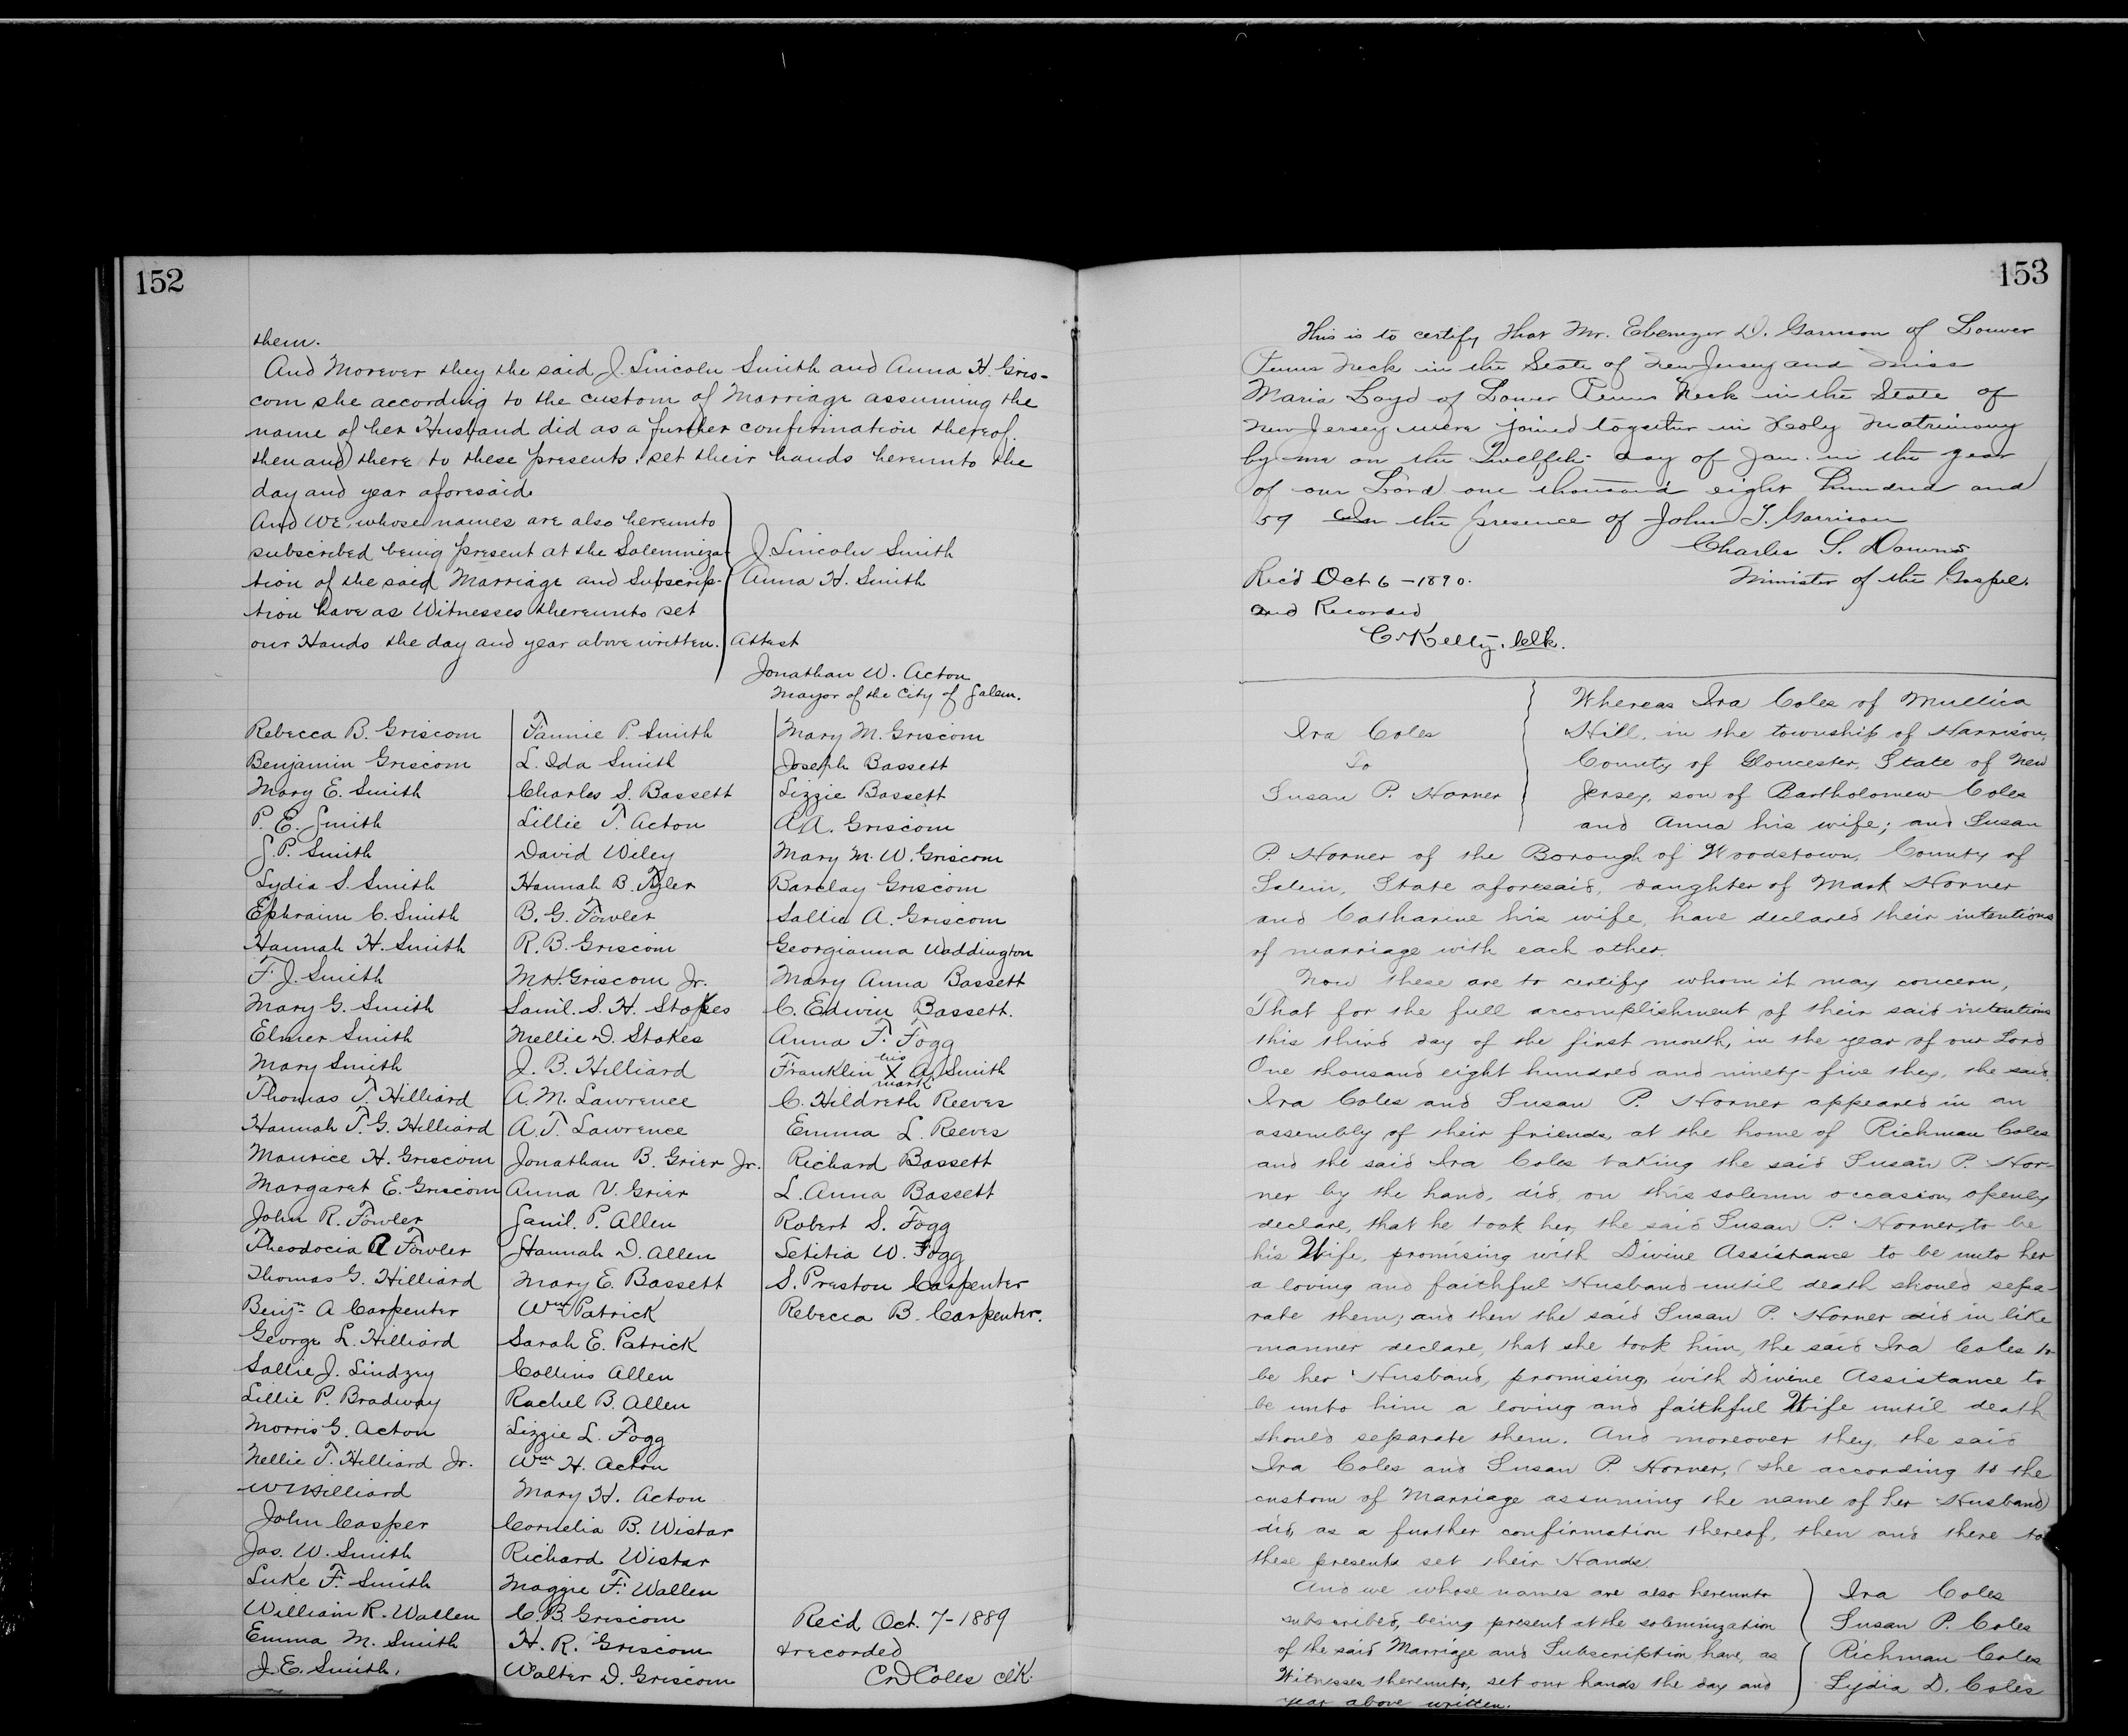 152
them.
And Morever they the said J. Lincoln Smith and Anna H. Gris-
com she according to the custom of Marriage assuming the
name of her Husband did as a further confirmation thereof.
then and there to these presents set their hands hereunto the
day and year aforesaid.
And We, whose names are also hereunto
subscribed being present at the Solemniza-
tion of the said Marriage and Subscrip-
tion have as Witnesses thereunto set
our Hands the day and year above written.
J. Lincoln Smith
Anna H. Smith
Attest
Jonathan W. Acton
Mayor of the City of Salem.
Rebecca B. Griscom
Benjamin Griscom
Mary E. Smith
P. E. Smith
J. P. Smith
Lydia S. Smith
Ephraim C. Smith
Hannah H. Smith
F. J. Smith
Mary G. Smith
Elmer Smith
Mary Smith
Thomas T. Hilliard
Hannah T. G. Hilliard
Maurice H. Griscom
Margaret E. Griscom
John R. Fowler
Theodocia Fowler
Thomas G. Hilliard
Benjn A Carpenter
George L. Hilliard
Sallie J. Lindzey
Lillie P. Bradway
Morris G. Acton
Nellie T. Hilliard Jr.
Hilliard
John Casper
Jas. W. Smith
Luke F. Smith
William R. Wallen
Emma M. Smith
J. E. Smith,
Fannie P. Smith
L. Ida Smith
Charles S. Bassett
Lillie T. Acton
David Wiley
Hannah B. Tyler
B. G. Fowler
R. B. Griscom
M H. Griscom Jr.
Saml. S. H. Stokes
Nellie D. Stokes
J. B. Hilliard
A. M. Lawrence
A. T. Lawrence
Jonathan B. Grier Jr.
Anna V. Grier
Saml. P. Allen
Hannah D. Allen
Mary E. Bassett
Wm Patrick
Sarah E. Patrick
Collins Allen
Rachel B. Allen
Lizzie L. Fogg
Wm H. Acton
Mary H. Acton
Cornelia B. Wistar
Richard Wistar
Maggie F. Wallen
C. B. Griscom
H. R. Griscom
Walter D. Griscom
Mary M. Griscom
Joseph Bassett
Lizzie Bassett
A A. Griscom
Mary M. W. Griscom
Barclay Griscom
Sallie A. Griscom
Georgianna Waddington
Mary Anna Bassett
C. Edwin Bassett.
Anna F. Fogg
his
Franklin X A. Smith
mark
C. Hildreth Reeves
Emma L. Reeves
Richard Bassett
L. Anna Bassett
Robert S. Fogg
Letitia W. Fogg
S. Preston Carpenter
Rebecca B. Carpenter.
Rec'd Oct. 7-1889
& recorded
Coles Clk.
153
This is to certify that Mr. Ebenezer D. Garrison of Lower
Penns Neck in the State of New Jersey and Miss
Maria Loyd of Lower Penns Neck in the State of
New Jersey were joined together in Holy Matrimony
by me on the Twelfth day of Jan. in the year
of our Lord one thousand eight hundred and
59 In the presence of John T. Garrison
Charles S. Downs
Minister of the Gospel.
Rec'd Oct 6-1890.
and Recorded
C. Kelty. Clk.
Ira Coles
To
Susan P. Horner
Whereas Ira Coles of Mullica
Hill, in the township of Harrison,
County of Gloucester, State of New
Jersey, son of Bartholomew Coles
and Anna his wife; and Susan
P. Horner of the Borough of Woodstown, County of
Salem, State aforesaid, daughter of Mark Horner
and Catharine his wife, have declared their intentions
of marriage with each other.
Now these are to certify whom it may concern,
That for the full accomplishment of their said intentions
this third day of the first month, in the year of our Lord
One thousand eight hundred and ninety-five they, the said,
Ira Coles and Susan P. Horner appeared in an
assembly of their friends, at the home of Richman Coles
and the said Ira Coles taking the said Susan P. Hor-
ner by the hand, did, on this solemn occasion, openly
declare, that he took her, the said Susan P. Horner, to be
his Wife, promising with Divine Assistance to be unto her
a loving and faithful Husband until death should sepa-
rate them; and then the said Susan P. Horner did in like
manner declare, that she took him, the said Ira Coles to
be her Husband, promising, with Divine Assistance to
be unto him a loving and faithful Wife until death
should separate them. And moreover they, the said
Ira Coles and Susan P. Horner, (she according to the
custom of Marriage assuming the name of her Husband)
did, as a further confirmation thereof, then and there to
these presents set their Hands.
And we whose names are also hereunto
subscribed, being present at the solemnization
of the said Marriage and Subscription have, as
Witnesses thereunto, set our hands the day and
year above written.
Ira Coles
Susan P. Coles
Richman Coles
Lydia D. Coles